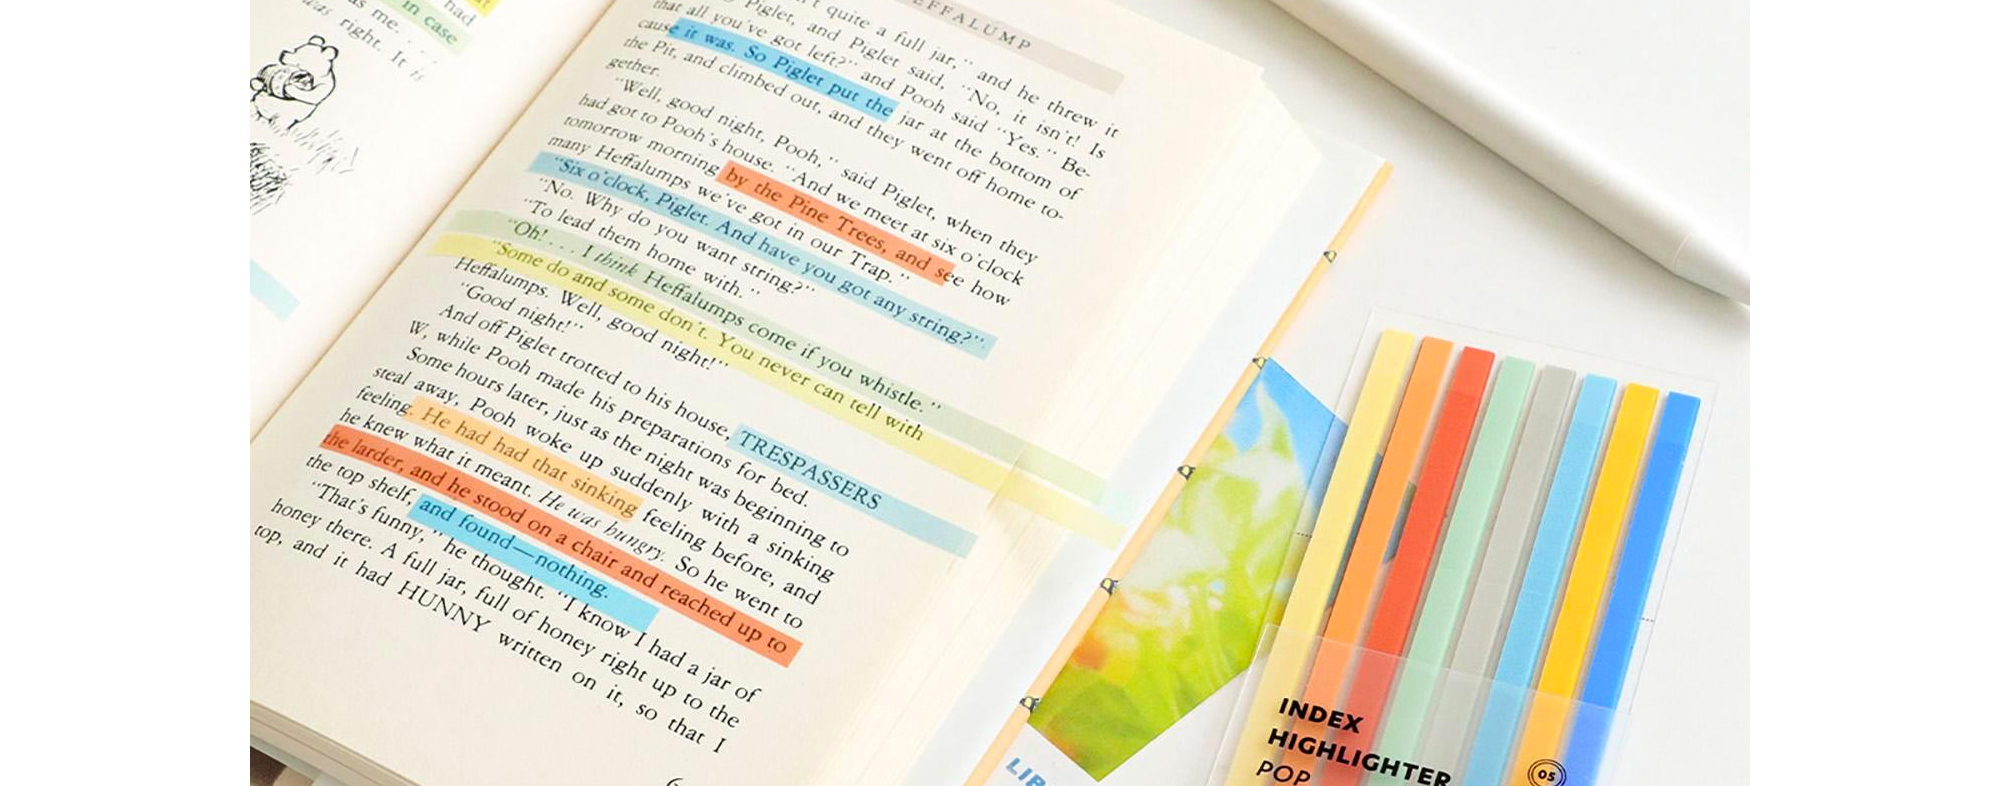 had
in case
as me. . . .
was right. It is
EFFALUMP
quite a full jar,” and he threw it
Piglet, and Piglet said, “No, it isn't! Is
that all you've got left?” and Pooh said “Yes.” Be-
cause it was. So Piglet put the jar at the bottom of
the Pit, and climbed out, and they went off home to-
gether.
“Well, good night, Pooh,” said Piglet, when they
had got to Pooh's house. “And we meet at six o'clock
tomorrow morning by the Pine Trees, and see how
many Heffalumps we've got in our Trap.”
“Six o'clock, Piglet. And have you got any string?”
“No. Why do you want string?”
“To lead them home with.”
“Oh! . . . I think Heffalumps come if you whistle.”
“Some do and some don't. You never can tell with
Heffalumps. Well, good night!”
“Good night!”
And off Piglet trotted to his house, TRESPASSERS
W, while Pooh made his preparations for bed.
Some hours later, just as the night was beginning to
steal away, Pooh woke up suddenly with a sinking
feeling. He had had that sinking feeling before, and
he knew what it meant. He was hungry. So he went to
the larder, and he stood on a chair and reached up to
the top shelf, and found—nothing.
“That's funny,” he thought. “I know I had a jar of
honey there. A full jar, full of honey right up to the
top, and it had HUNNY written on it, so that I
INDEX
HIGHLIGHTER
POP
05